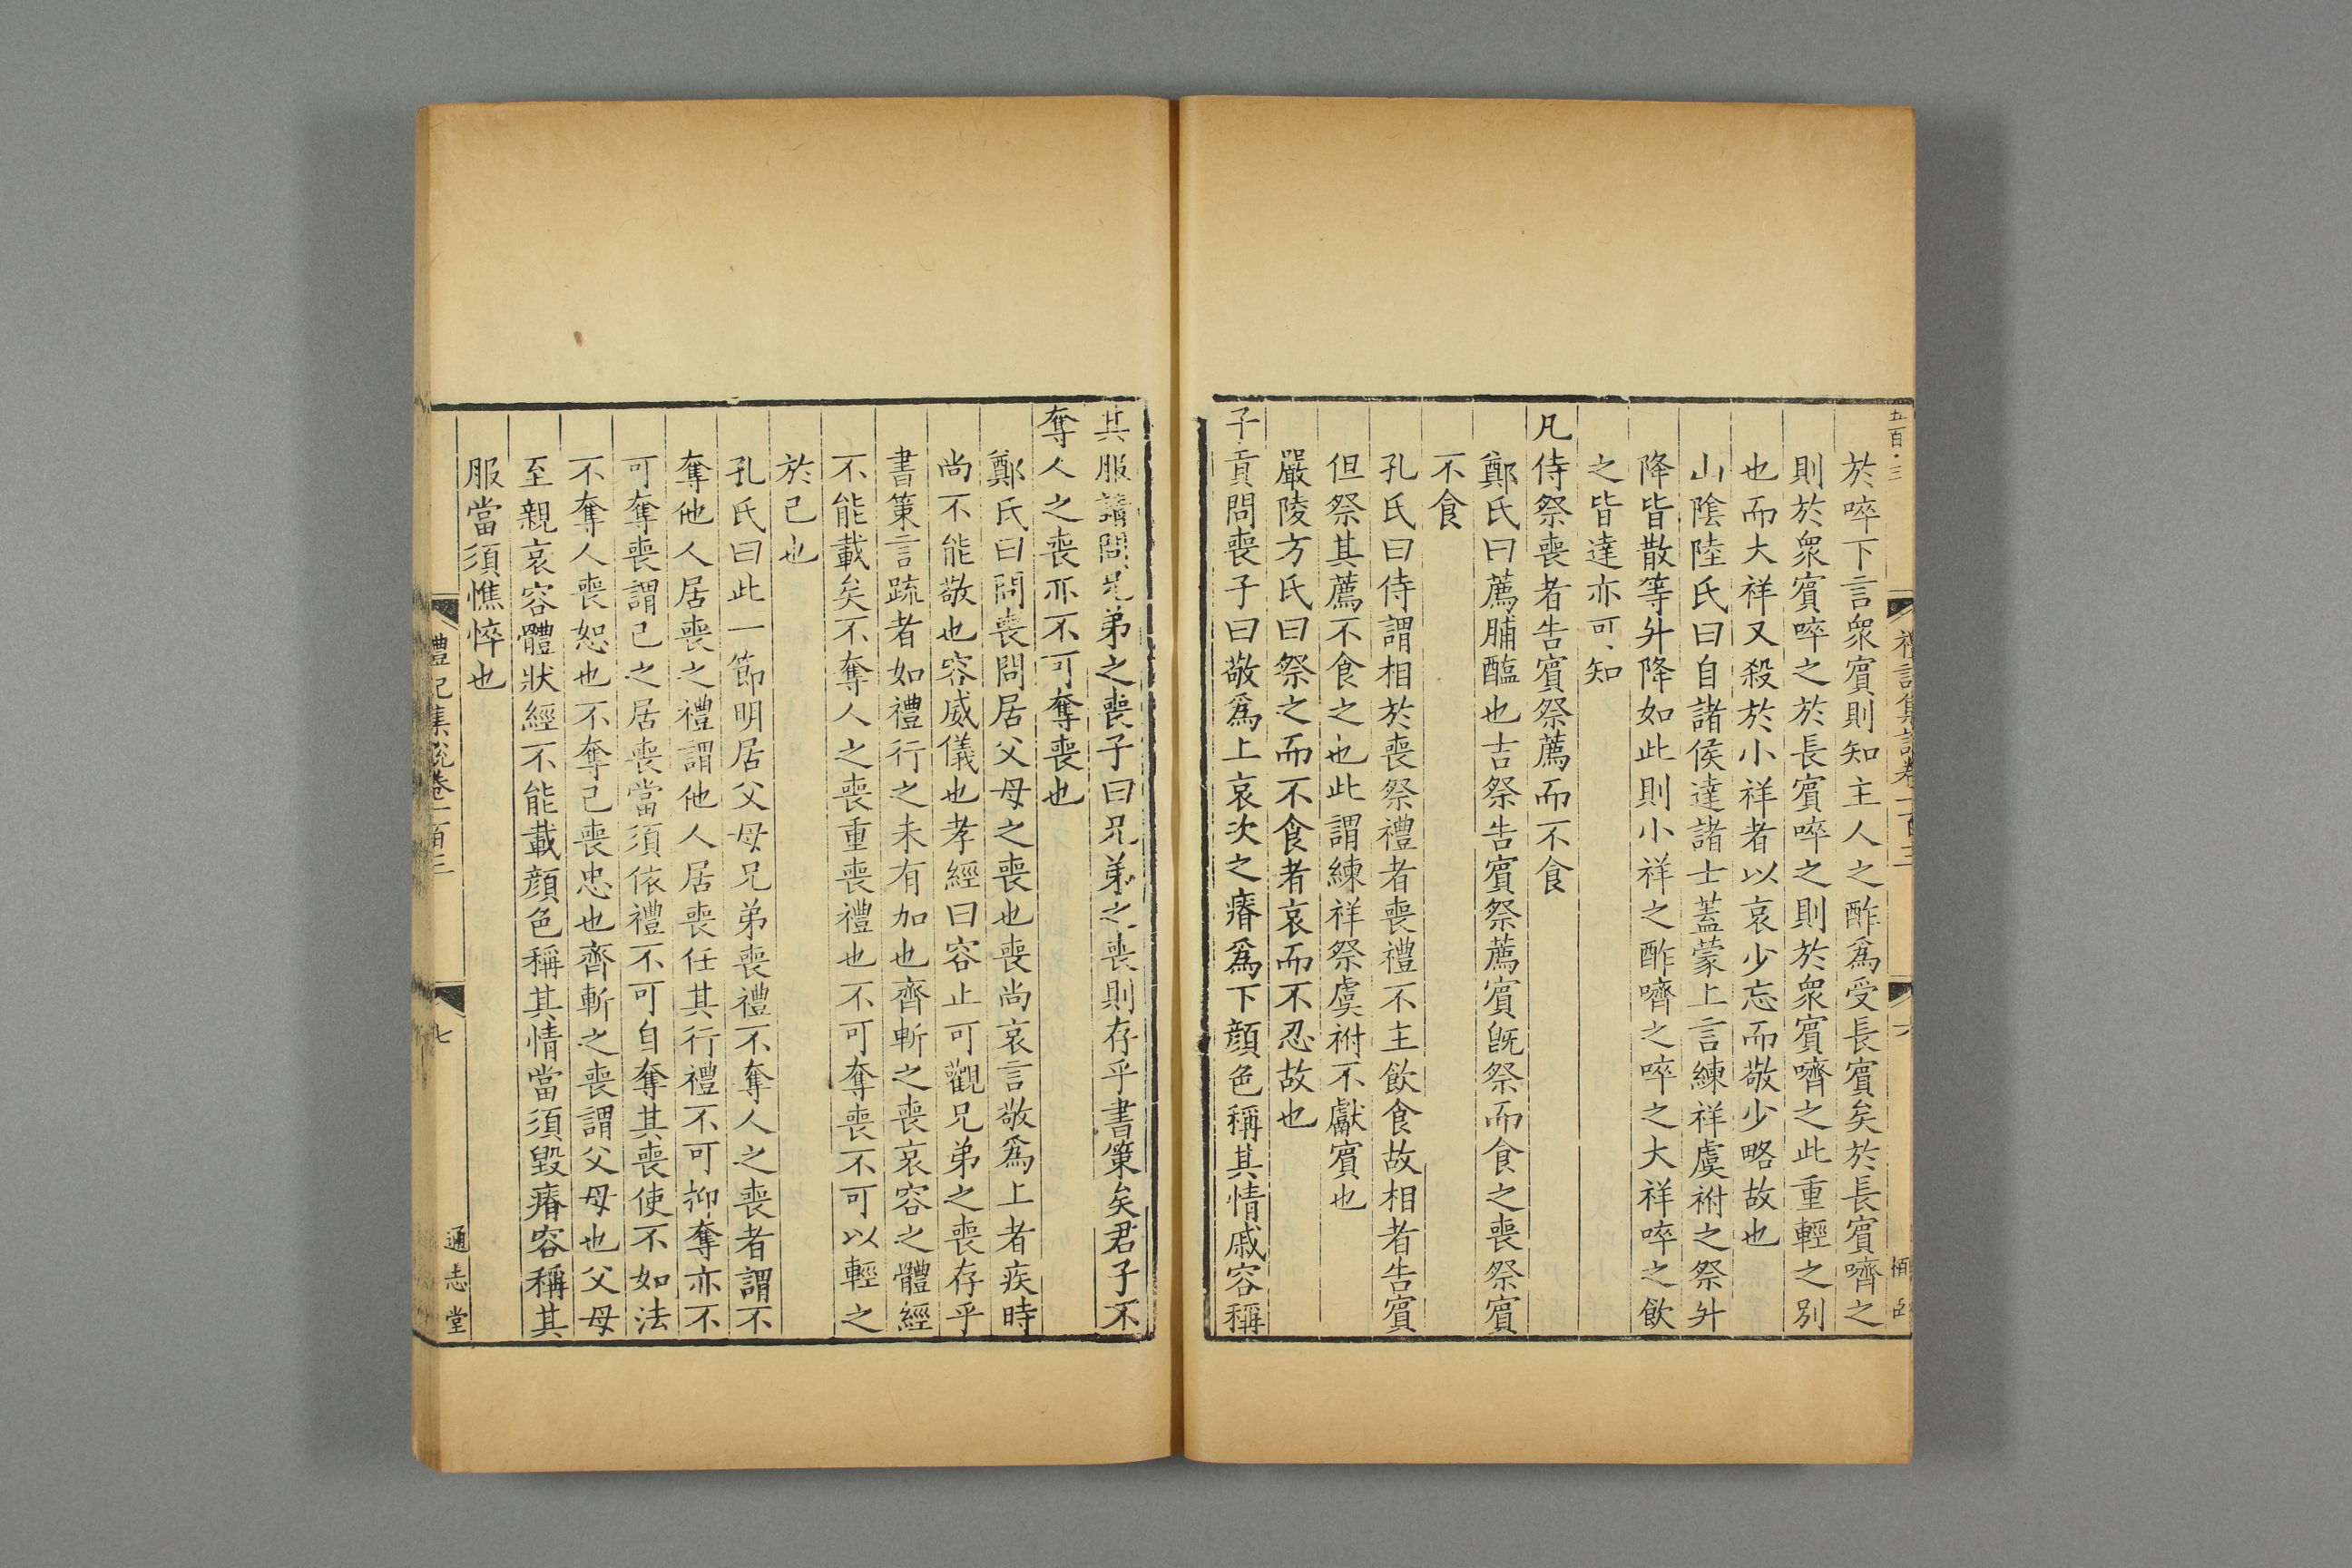 五百三
禮記集說卷一百三
六
於啐下言衆賓則知主人之酢爲受長賓矣於長賓嚌之
則於衆賓啐之於長賓啐之則於衆賓嚌之此重輕之別
也而大祥又殺於小祥者以哀少忘而敬少略故也
山陰陸氏曰自諸侯達諸士蓋蒙上言練祥虞祔之祭升
降皆散等升降如此則小祥之酢嚌之啐之大祥啐之飲
之皆達亦可知
凡侍祭喪者告賓祭薦而不食
鄭氏曰薦脯醢也吉祭告賓祭薦賓旣祭而食之喪祭賓
不食
孔氏曰侍謂相於喪祭禮者喪禮不主飲食故相者告賓
但祭其薦不食之也此謂練祥祭虞祔不獻賓也
嚴陵方氏曰祭之而不食者哀而不忍故也
子貢問喪子曰敬爲上哀次之瘠爲下顔色稱其情戚容稱
其服請問兄弟之喪子曰兄弟之喪則存乎書策矣君子不
奪人之喪亦不可奪喪也
鄭氏曰問喪問居父母之喪也喪尚哀言敬爲上者疾時
尚不能敬也容威儀也孝經曰容止可觀兄弟之喪存乎
書策言疏者如禮行之未有加也齊斬之喪哀容之體經
不能載矣不奪人之喪重喪禮也不可奪喪不可以輕之
於己也
孔氏曰此一節明居父母兄弟喪禮不奪人之喪者謂不
奪他人居喪之禮謂他人居喪任其行禮不可抑奪亦不
可奪喪謂己之居喪當須依禮不可自奪其喪使不如法
不奪人喪恕也不奪己喪忠也齊斬之喪謂父母也父母
至親哀容體狀經不能載顔色稱其情當須毀瘠容稱其
服當須憔悴也
禮記集說卷一百三
七
通志堂